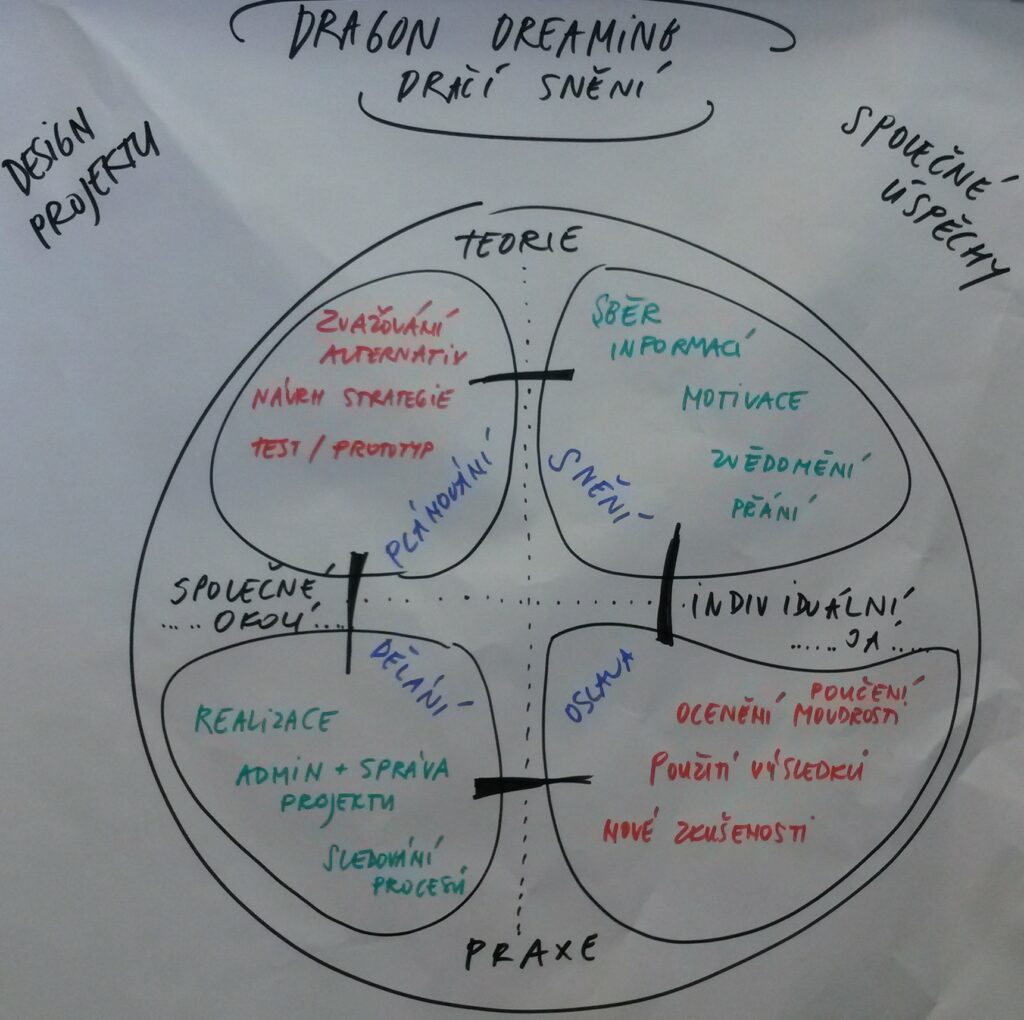 DRAGON DREAMING
DRAČÍ SNĚNÍ
DESIGN
PROJEKTU
SPOLEČNÉ
ÚSPĚCHY
TEORIE
ZVAŽOVÁNÍ
ALTERNATIV
NÁVRH STRATEGIE
TEST / PROTOTYP
PLÁNOVÁNÍ
SBĚR
INFORMACÍ
MOTIVACE
ZVĚDOMĚNÍ
PŘÁNÍ
SNĚNÍ
SPOLEČNÉ
..... OKOLÍ .....
INDIVIDUÁLNÍ
...... JÁ ......
DĚLÁNÍ
REALIZACE
ADMIN + SPRÁVA
PROJEKTU
SLEDOVÁNÍ
PROCESŮ
OSLAVA
POUČENÍ
OCENĚNÍ MOUDROSTI
POUŽITÍ VÝSLEDKŮ
NOVÉ ZKUŠENOSTI
PRAXE